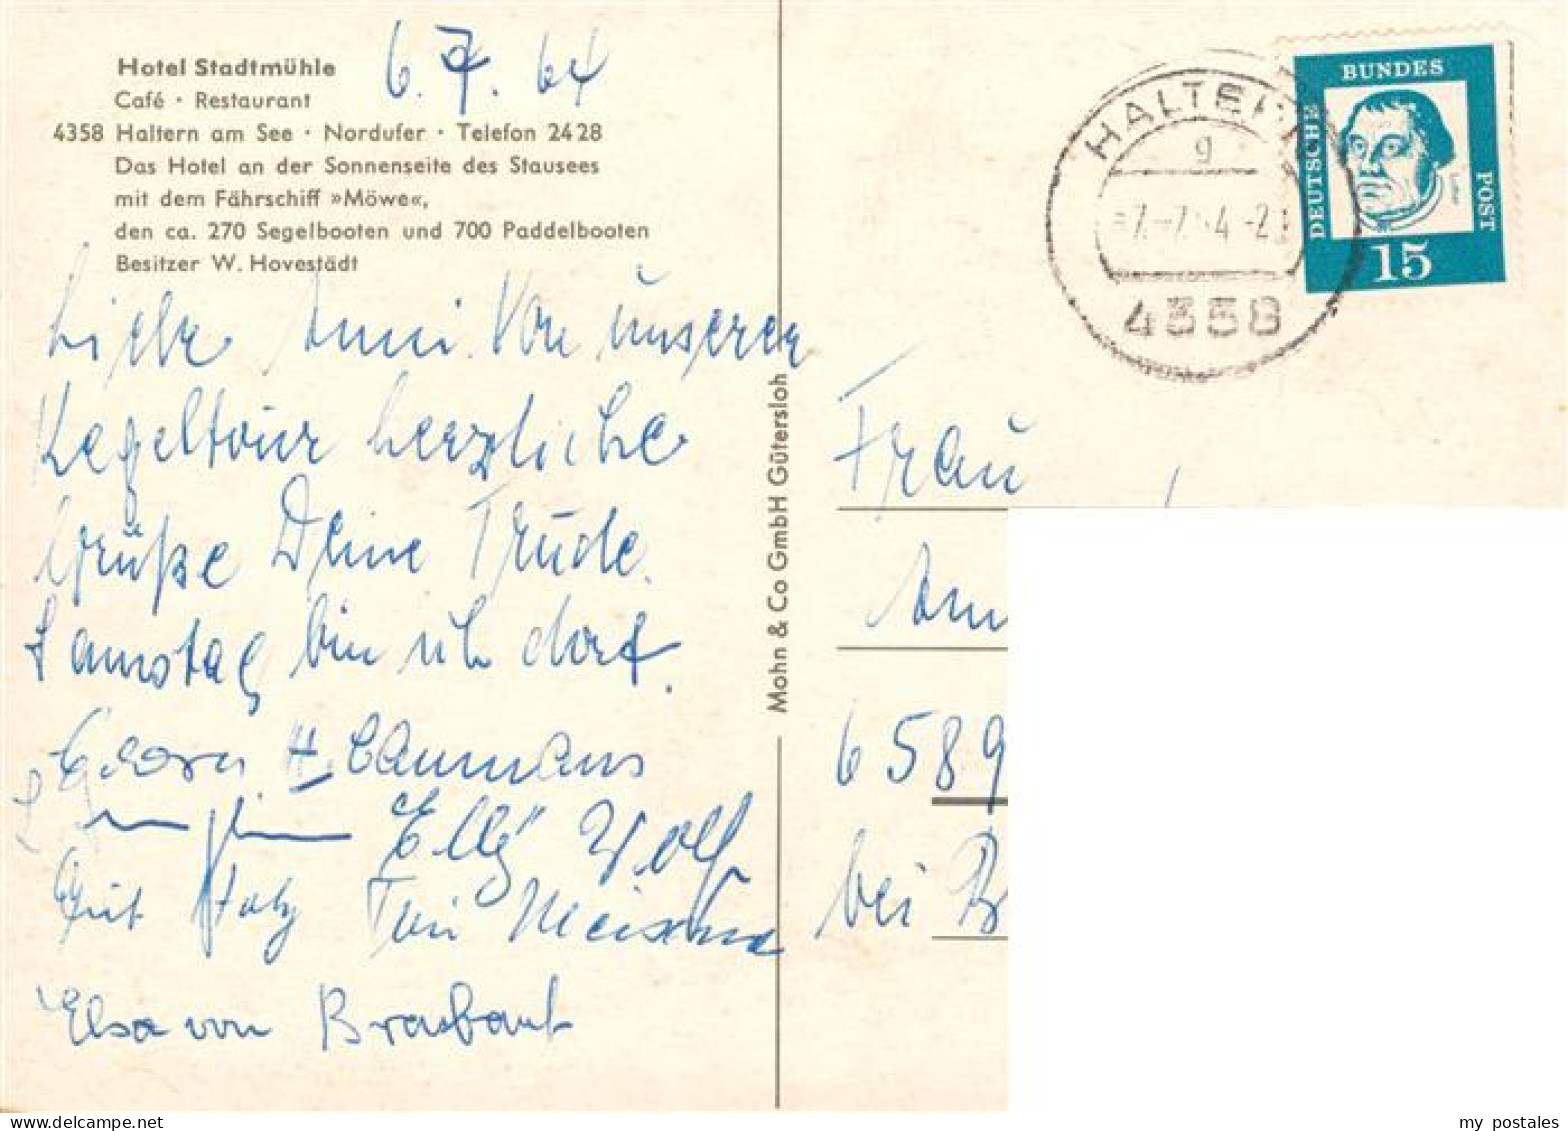 Hotel Stadtmühle
Café · Restaurant
4358 Haltern am See · Nordufer · Telefon 24 28
Das Hotel an der Sonnenseite des Stausees
mit dem Fährschiff »Möwe«,
den ca. 270 Segelbooten und 700 Paddelbooten
Besitzer W. Hovestädt
6. 7. 64
Liebe Anni. Von unserer
Kegeltour herzliche
Grüße Deine Trude.
Samstag bin ich dort.
Elly Wolf
Toni
Elsa von Brabant
Mohn & Co GmbH Gütersloh
HALTERN
g
4358
DEUTSCHE
BUNDES
POST
15
Frau
6589
bei B
my postales